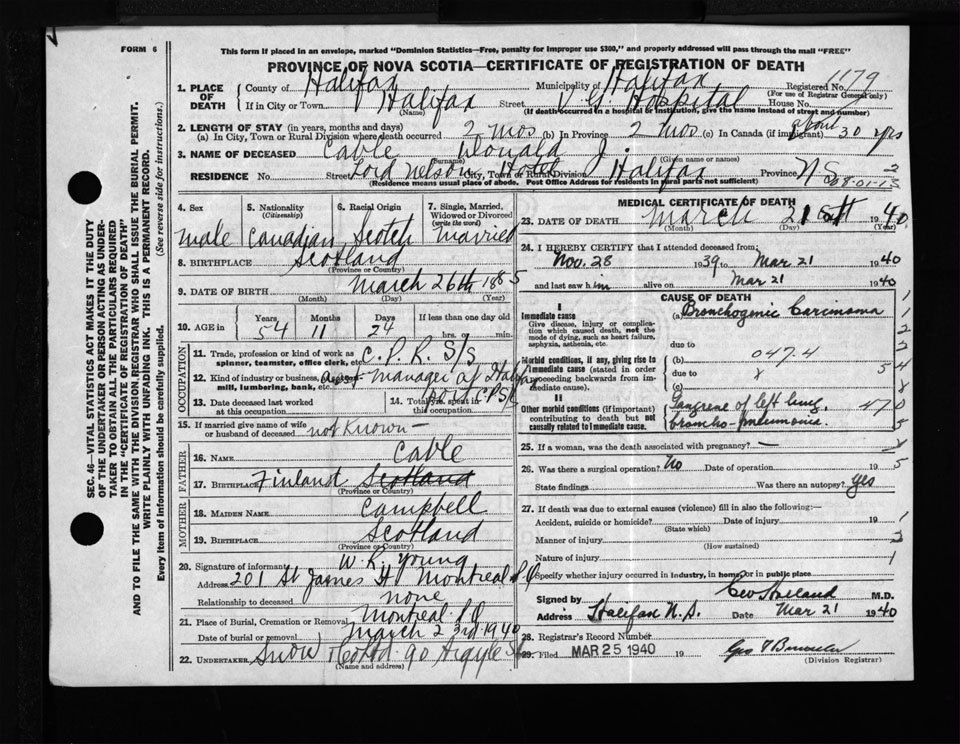 FORM 6
This form if placed in an envelope, marked "Dominion Statistics—Free, penalty for improper use $300," and properly addressed will pass through the mail "FREE"
PROVINCE OF NOVA SCOTIA—CERTIFICATE OF REGISTRATION OF DEATH
1. PLACE OF DEATH
County of Halifax Municipality of Halifax Registered No. 1179
(For use of Registrar General only)
If in City or Town Halifax Street V. G. Hospital House No.
(Name) (If death occurred in a hospital or institution, give the name instead of street and number)
2. LENGTH OF STAY (in years, months and days)
(a) In City, Town or Rural Division where death occurred 2 mos (b) In Province 2 mos (c) In Canada (if immigrant) about 30 yrs
3. NAME OF DECEASED Cable Donald J.
(Surname) (Given name or names)
RESIDENCE No. Street Lord Nelson Hotel City, Town or Rural Division Halifax Province N S
(Residence means usual place of abode. Post Office Address for residents in rural parts not sufficient)
4. Sex
male
5. Nationality (Citizenship)
Canadian
6. Racial Origin
Scotch
7. Single, Married, Widowed or Divorced (write the word)
married
8. BIRTHPLACE Scotland
(Province or Country)
9. DATE OF BIRTH March 26th 1885
(Month) (Day) (Year)
10. AGE in
Years Months Days If less than one day
54 11 24 hrs. or min.
OCCUPATION
11. Trade, profession or kind of work as spinner, teamster, office clerk, etc. C. P. R. S/S
12. Kind of industry or business, as mill, lumbering, bank, etc. manager of
13. Date deceased last worked at this occupation
14. Total yrs. spent in this occupation
15. If married give name of wife or husband of deceased not Known —
FATHER
16. NAME Cable
17. BIRTHPLACE Finland Scotland
(Province or Country)
MOTHER
18. MAIDEN NAME Campbell
19. BIRTHPLACE Scotland
(Province or Country)
20. Signature of informant W. R. Young
Address 201 St James St Montreal P Q
Relationship to deceased none
21. Place of Burial, Cremation or Removal Montreal P. Q
Date of burial or removal March 23rd 1940
22. UNDERTAKER Snow & Co Ltd. 90 Argyle St
(Name and address)
MEDICAL CERTIFICATE OF DEATH
23. DATE OF DEATH March 21st 1940
(Month) (Day) (Year)
24. I HEREBY CERTIFY that I attended deceased from:
Nov. 28 1939 to Mar 21 1940
and last saw him alive on Mar 21 1940
CAUSE OF DEATH
I
Immediate cause
Give disease, injury or complication which caused death, not the mode of dying, such as heart failure, asphyxia, asthenia, etc.
(a) Bronchogenic Carcinoma
due to
Morbid conditions, if any, giving rise to immediate cause (stated in order proceeding backwards from immediate cause)
(b) 047.4
due to
(c)
II
Other morbid conditions (if important) contributing to death but not causally related to immediate cause.
Gangrene of left lung.
broncho-pneumonia.
25. If a woman, was the death associated with pregnancy? —
26. Was there a surgical operation? No Date of operation 19
State findings Was there an autopsy? yes
27. If death was due to external causes (violence) fill in also the following:—
Accident, suicide or homicide? Date of injury 19
(State which)
Manner of injury
(How sustained)
Nature of injury
Specify whether injury occurred in industry, in home or in public place
Signed by M.D.
Address Halifax N. S. Date Mar 21 1940
28. Registrar's Record Number
29. Filed MAR 25 1940 19
(Division Registrar)
SEC. 46—VITAL STATISTICS ACT MAKES IT THE DUTY
OF THE UNDERTAKER OR PERSON ACTING AS UNDERTAKER TO OBTAIN ALL THE PARTICULARS REQUIRED
IN THE "CERTIFICATE OF REGISTRATION OF DEATH"
AND TO FILE THE SAME WITH THE DIVISION REGISTRAR WHO SHALL ISSUE THE BURIAL PERMIT.
WRITE PLAINLY WITH UNFADING INK. THIS IS A PERMANENT RECORD.
Every item of information should be carefully supplied. (See reverse side for instructions.)